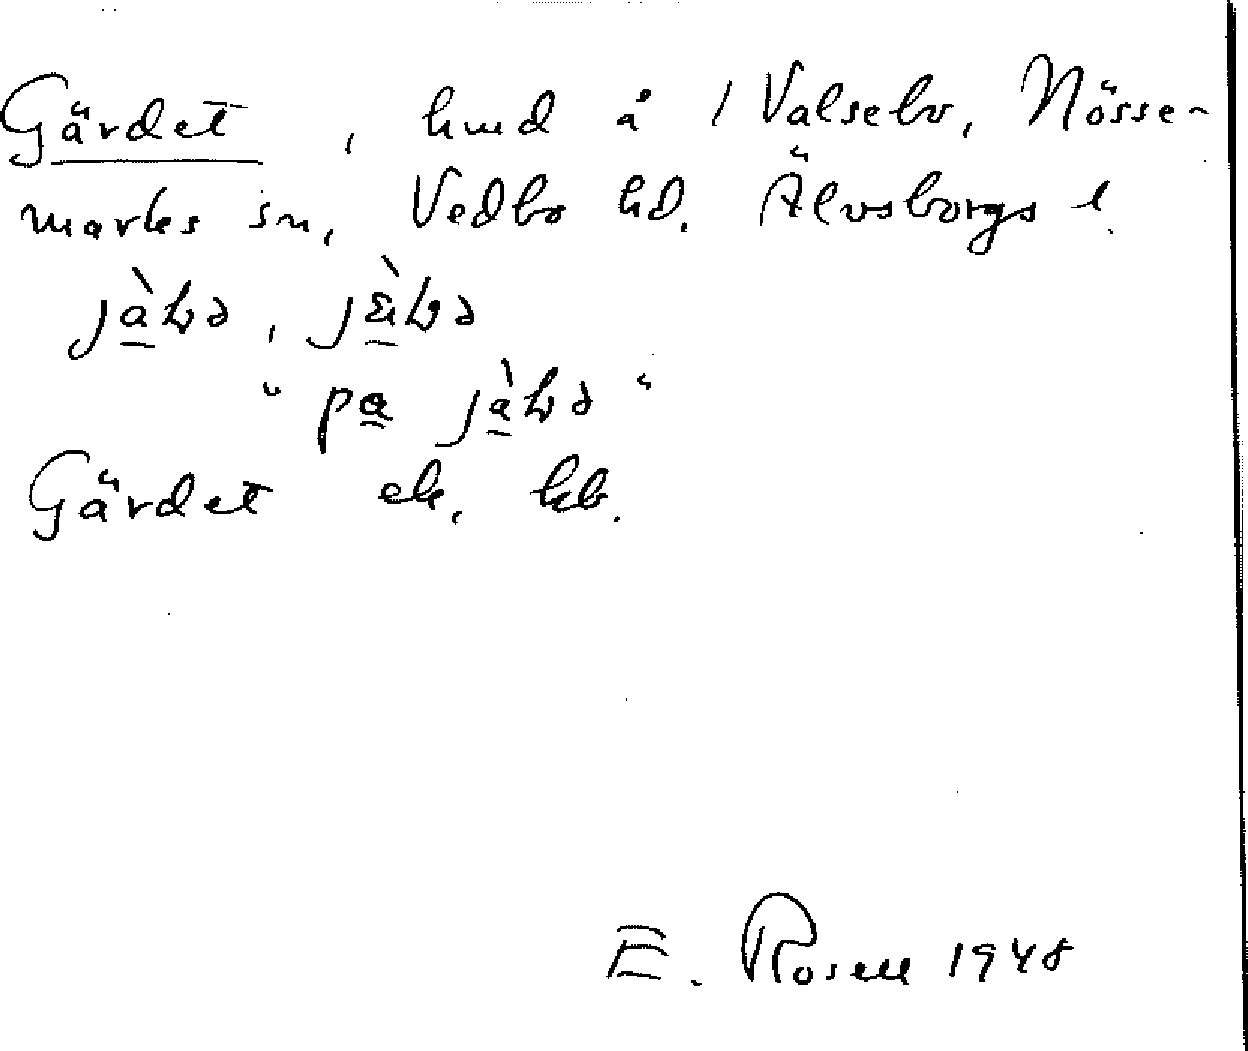 Gärdet, hmd å 1 Valsebo, Nösse-
marks sn, Vedbo hd. Älvsborgs l.
"pa
Gärdet ek. kb.
E. Rosell 1948